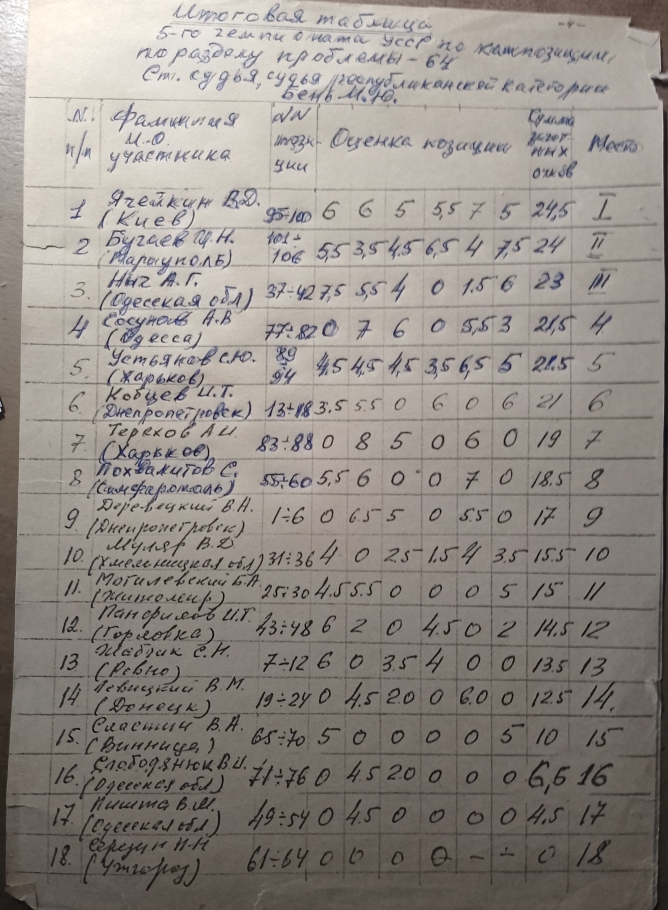 Итоговая таблица
5-го чемпионата УССР по композиции,
по разделу проблемы-64
Ст. судья, судья республиканской категории
Бень М.Ю.
-4-
N. п/п Фамилия И.О. участника NN позиции Оценка позиции Сумма зачетных очков Место
1 Ячейкин В.Д. (Киев) 95÷100 6 6 5 5,5 7 5 24,5 I
2 Бугаев И.Н. (Мариуполь) 101÷106 5,5 3,5 4,5 6,5 4 7,5 24 II
3. А.Г. (Одесская обл) 37÷42 7,5 5,5 4 0 1.5 6 23 III
4 Сосунов А.В (Одесса) 77÷82 0 7 6 0 5,5 3 21,5 4
5. Устьянов С.Ю. (Харьков) 89 94 4,5 4,5 4,5 3,5 6,5 5 21.5 5
6. Кобцев И.Т. (Днепропетровск) 13÷18 3.5 5.5 0 6 0 6 21 6
7 Терехов А.И. (Харьков) 83÷88 0 8 5 0 6 0 19 7
8 С. (Симферополь) 55÷60 5,5 6 0 0 7 0 18.5 8
9 Деревецкий В.А. (Днепропетровск) 1÷6 0 6.5 5 0 5.5 0 17 9
10. Муляр В.Д (Хмельницкая обл) 31÷36 4 0 2.5 1.5 4 3.5 15.5 10
11. Могилевский Б.А. (Житомир) 25÷30 4.5 5.5 0 0 0 5 15 11
12. Панфилов И.Т. (Горловка) 43÷48 6 2 0 4.5 0 2 14.5 12
13 С.Н. (Ровно) 7÷12 6 0 3.5 4 0 0 13.5 13
14. Левицкий В.М. (Донецк) 19÷24 0 4.5 2.0 0 6.0 0 12.5 14.
15. Сластин В.А. (Винница) 65÷70 5 0 0 0 0 5 10 15
16. Слободянюк В.И. (Одесская обл) 71÷76 0 4.5 2.0 0 0 0 6,5 16
17. В.М. (Одесская обл) 49÷54 0 4.5 0 0 0 0 4,5 17
18. Н.Н (Ужгород) 61÷64 0 0 0 0 - ÷ 0 18